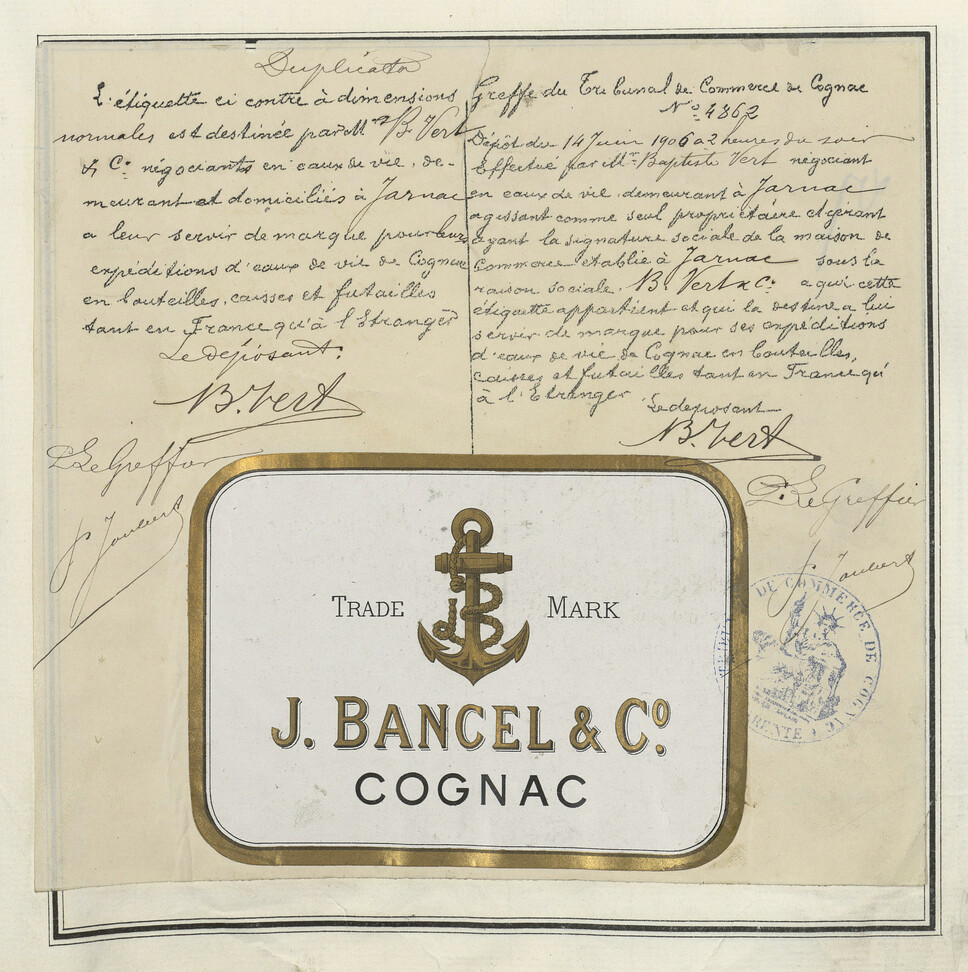 Duplicata
L'étiquette ci contre à dimensions
normales est destinée par Mrs B. Vert
& Cie négociants en eaux de vie, de-
meurant et domiciliés à Jarnac
a leur servir de marque pour leurs
expéditions d'eaux de vie de Cognac
en bouteilles, caisses et futailles
tant en France qu'à l'Etranger
Le déposant.
B. Vert
P. Le Greffier
P. Joubert
Greffe du Tribunal de Commerce de Cognac
No 4862
Dépôt du 14 Juin 1906 a 2 heures du soir
Effectué par Mr Baptiste Vert négociant
en eaux de vie demeurant à Jarnac
agissant comme seul propriétaire et gérant
ayant la signature sociale de la maison de
Commerce établie à Jarnac sous la
raison sociale B. Vert & Cie a qui cette
étiquette appartient et qui la destine a lui
servir de marque pour ses expéditions
d'eaux de vie de Cognac en bouteilles,
caisses et futailles tant en France qu'
à l'Etranger
Le déposant
B. Vert
P. Le Greffier
P. Joubert
TRADE MARK
J. BANCEL & Co.
COGNAC
DE COMMERCE DE COGNAC